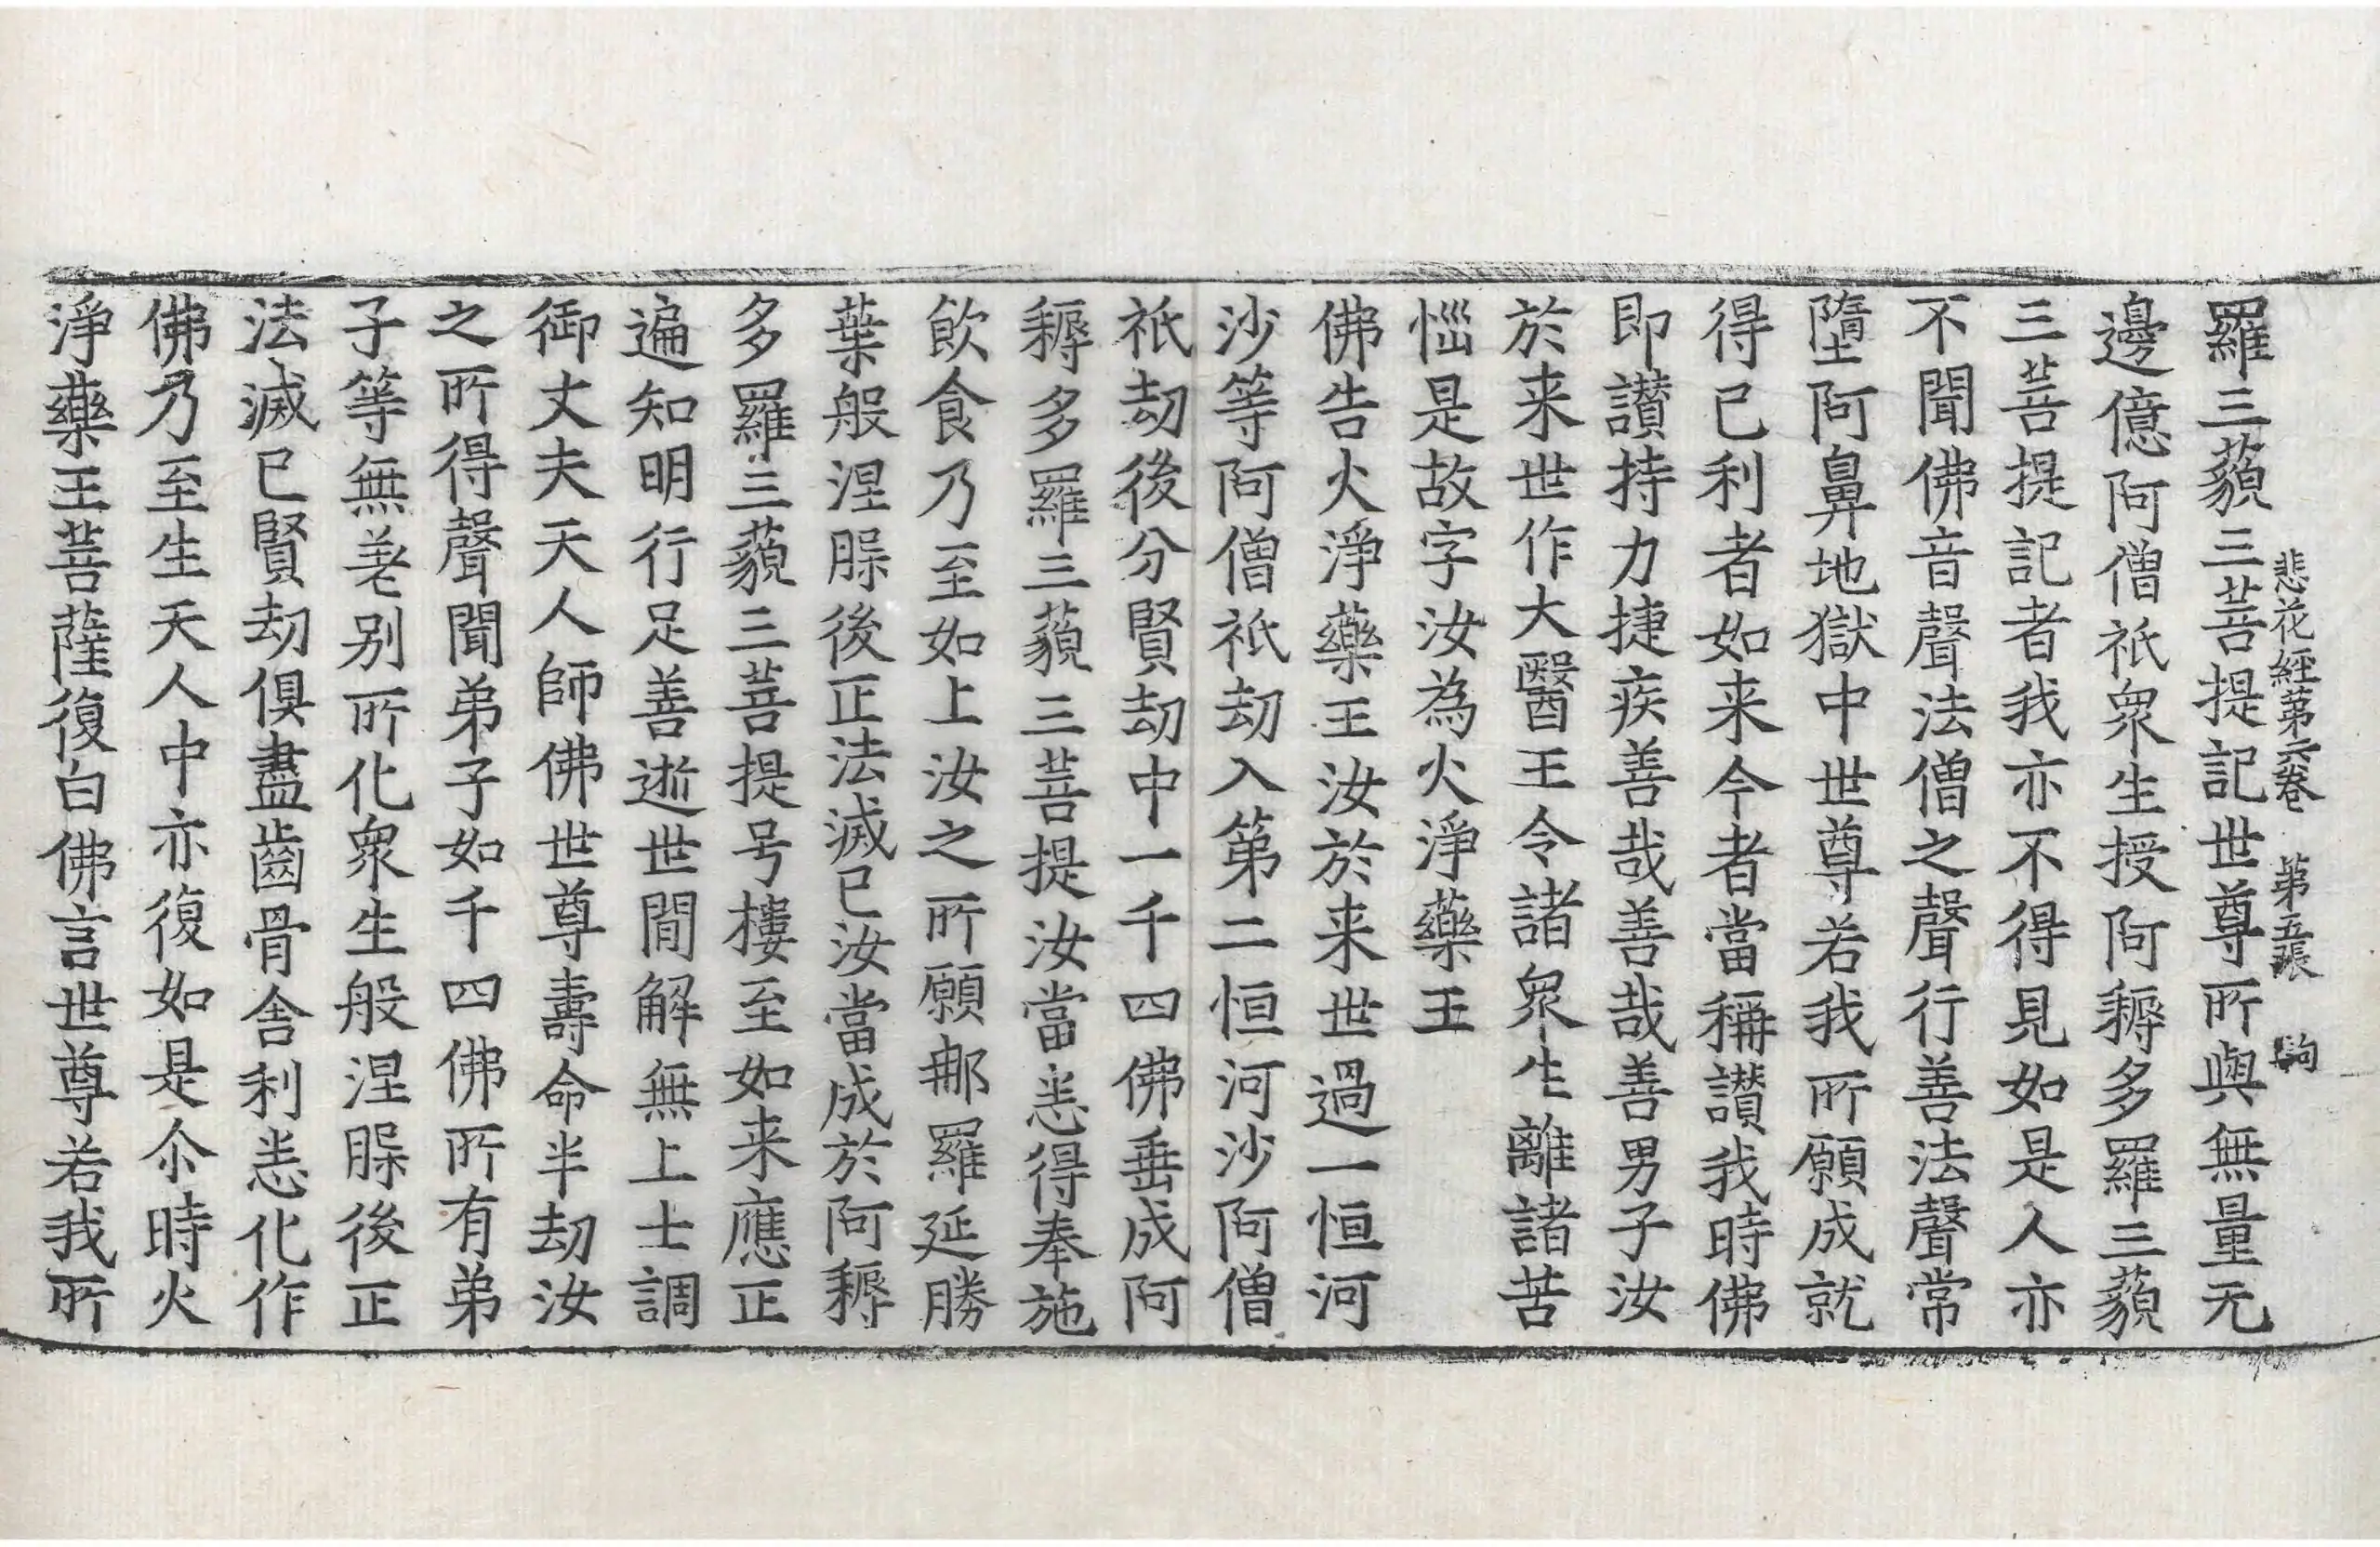 悲花經第六卷 第五張 駒
羅三藐三菩提記世尊所與無量无
邊億阿僧祇衆生授阿耨多羅三藐
三菩提記者我亦不得見如是人亦
不聞佛音聲法僧之聲行善法聲常
墮阿鼻地獄中世尊若我所願成就
得已利者如来今者當稱讚我時佛
即讃持力捷疾善哉善哉善男子汝
於来世作大醫王令諸衆生離諸苦
惱是故字汝為火淨藥王
佛告火淨藥王汝於来世過一恒河
沙等阿僧祇劫入第二恒河沙阿僧
祇劫後分賢劫中一千四佛垂成阿
耨多羅三藐三菩提汝當悉得奉施
飲食乃至如上汝之所願那羅延勝
葉般涅槃後正法滅已汝當成於阿耨
多羅三藐三菩提号樓至如来應正
遍知明行足善逝世間解無上士調
御丈夫天人師佛世尊壽命半劫汝
之所得聲聞弟子如千四佛所有弟
子等無差别所化衆生般涅槃後正
法滅已賢劫俱盡齒骨舎利悉化作
佛乃至生天人中亦復如是尒時火
淨藥王菩薩復白佛言世尊若我所